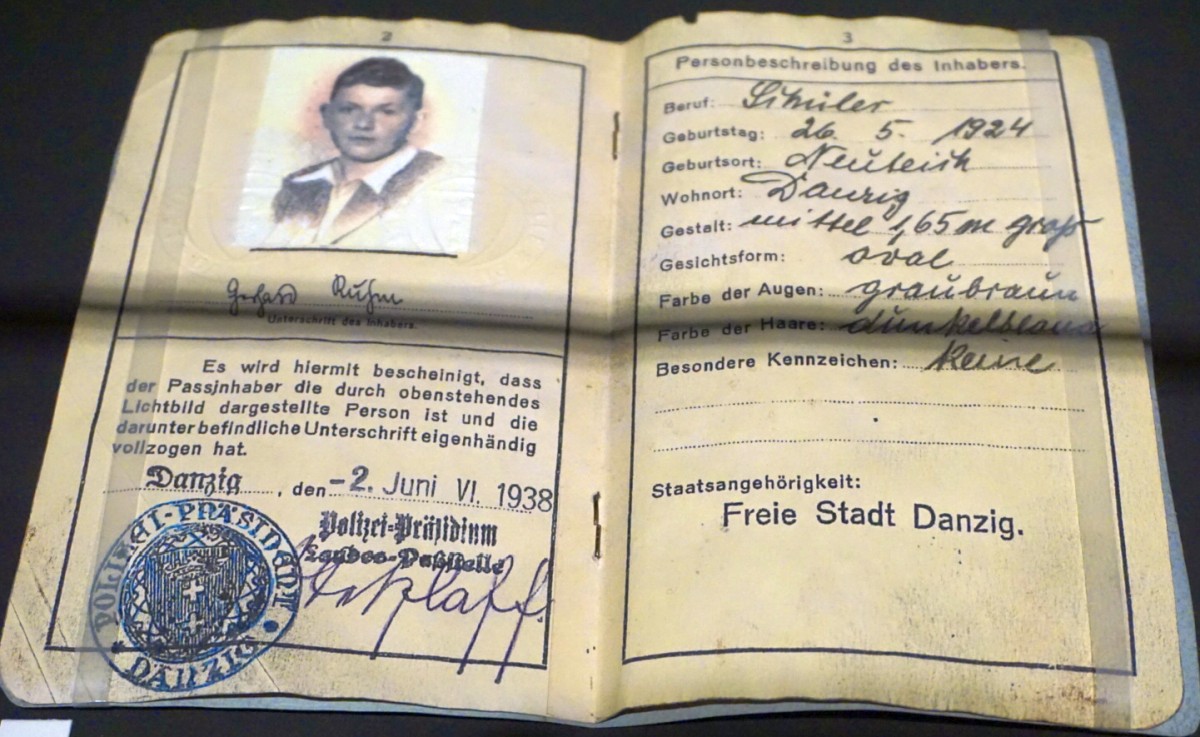 2
Gerhard Ruhm
Unterschrift des Inhabers.
Es wird hiermit bescheinigt, dass
der Passjnhaber die durch obenstehendes
Lichtbild dargestellte Person ist und die
darunter befindliche Unterschrift eigenhändig
vollzogen hat.
Danzig, den -2. Juni VI. 1938
Polizei-Präsidium
Landes-Paßstelle
POLIZEI-PRÄSIDENT
DANZIG
3
Personbeschreibung des Inhabers.
Beruf: Schüler
Geburtstag: 26. 5. 1924
Geburtsort: Neuteich
Wohnort: Danzig
Gestalt: mittel 1,65 m groß
Gesichtsform: oval
Farbe der Augen: graubraun
Farbe der Haare: dunkelblond
Besondere Kennzeichen: keine
Staatsangehörigkeit:
Freie Stadt Danzig.